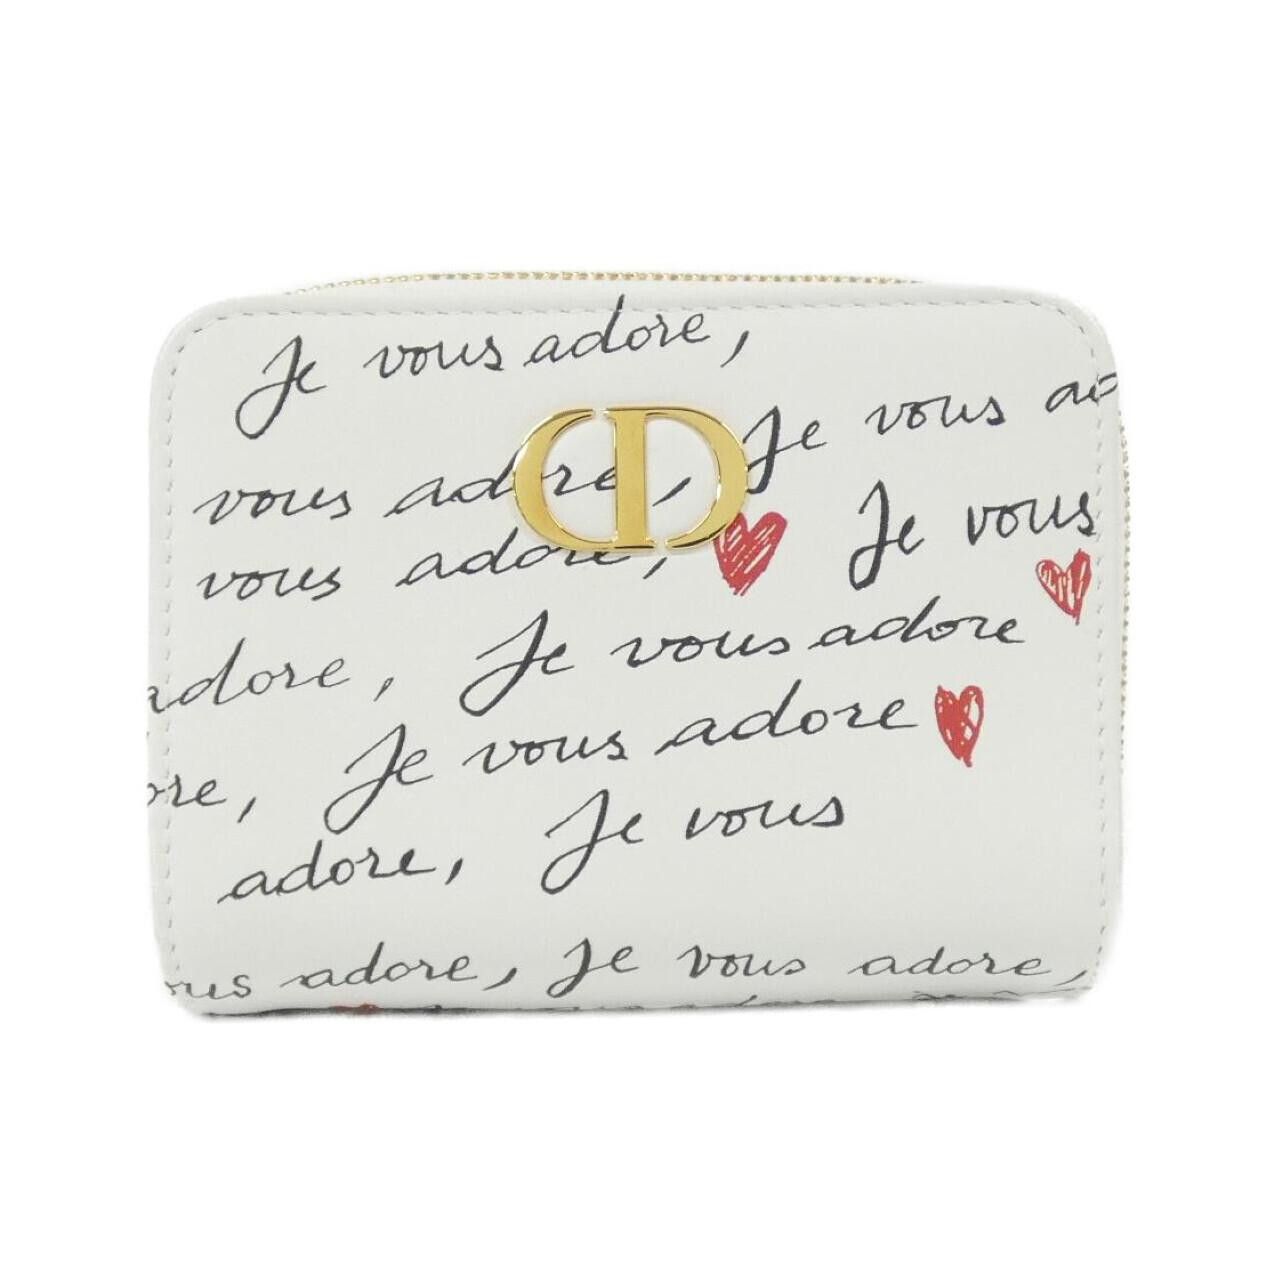 Je vous adore,
Je vous ad
vous adore,
CD
vous adore,
Je vous
adore, Je vous adore
ore, Je vous adore
adore, Je vous
ous adore, Je vous adore,